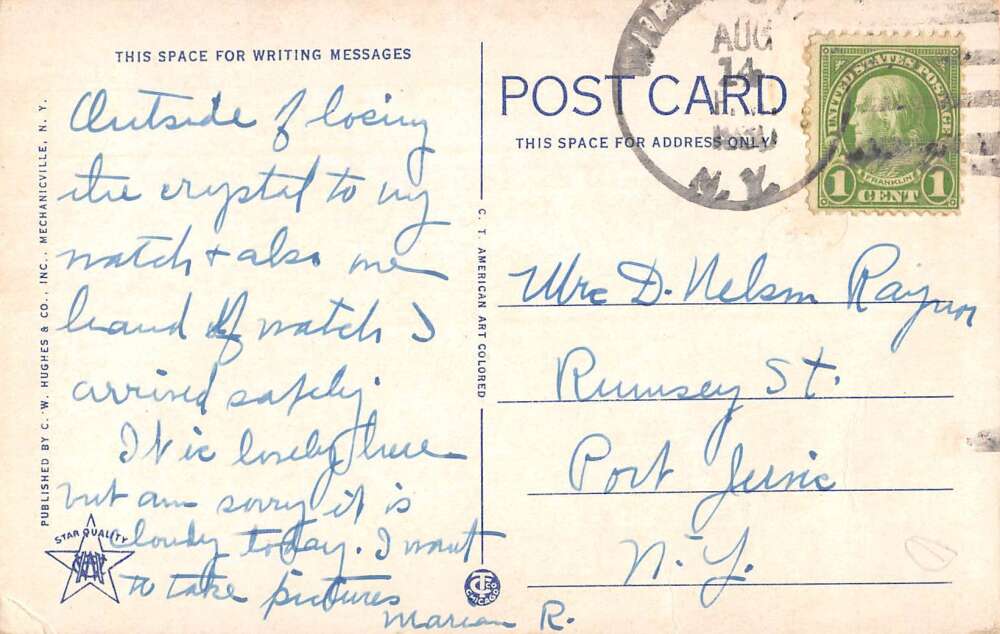 THIS SPACE FOR WRITING MESSAGES
Outside of losing
the crystal to my
watch + also one
hand of watch I
arrived safely.
It is lovely here
but am sorry it is
cloudy today. I want
to take pictures
Marian R.
PUBLISHED BY C. W. HUGHES & CO., INC., MECHANICVILLE, N. Y.
STAR QUALITY
C. T. AMERICAN ART COLORED
CHICAGO
POST CARD
THIS SPACE FOR ADDRESS ONLY
AUG
14
N. Y.
UNITED STATES POSTAGE
FRANKLIN
1 CENT 1
Mrs D. Nelson Raynor
Rumsey St.
Port Jervis
N. Y.